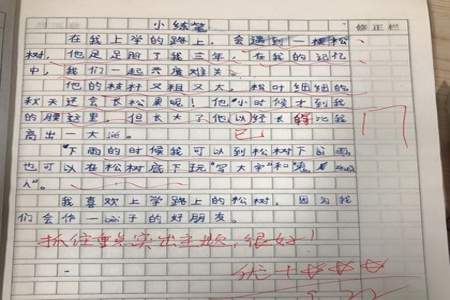 小练笔
修正栏
在我上学的路上，会遇到一棵松
树，他足足陪了我三年，在我的记忆
中，我们一起共度难关。
他的枝杆又粗又大，松叶细细的
秋天还会长松果呢！他"小时候才到我
的腰这里，但长大了他以经长得比我
已
高出一大
"下雨的时候我可以到松树下
也可以在松树底下玩"写大字"和
人"。
我喜欢上学路上的松树，因为我
们会作一辈子的好朋友。
抓住重点突出主题，很好！
优+